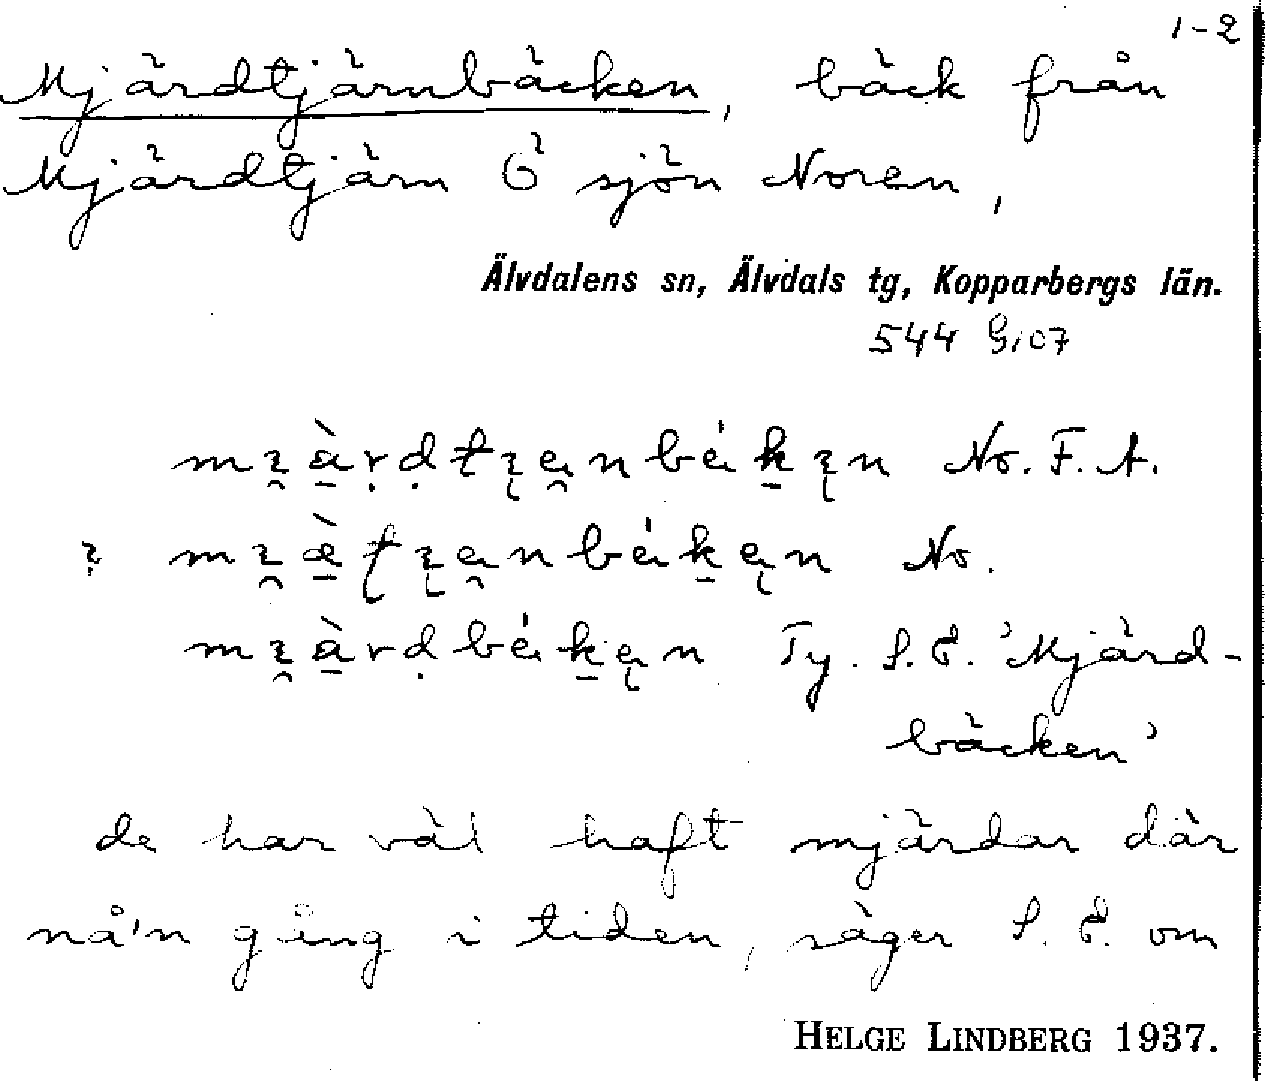 1-2
Mjärdtjärnbäcken, bäck från
Mjärdtjärn Ö sjön Noren,
Älvdalens sn, Älvdals tg, Kopparbergs län.
544 Gi07
No. F. A.
? No.
Ty. S. E. 'Mjärd-
bäcken'
de har väl haft mjärdar där
nå'n gång i tiden, säger S. E. om
HELGE LINDBERG 1937.